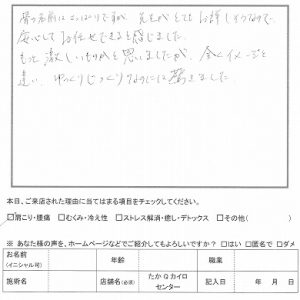 安心してお任せできると感じました。
もっと激しいものかと思いましたが、全くイメージと
違い、ゆっくりじっくりなのには驚きました。
本日、ご来店された理由に当てはまる項目をチェックしてください。
☑肩こり・腰痛 □むくみ・冷え性 □ストレス解消・癒し・デトックス □その他( )
※ あなた様の声を、ホームページなどでご紹介してもよろしいですか？ □はい □匿名で □ダメ
お名前 (イニシャル可) 年齢 職業
施術名 店舗名(必須) たかQカイロセンター 記入日 年 月 日